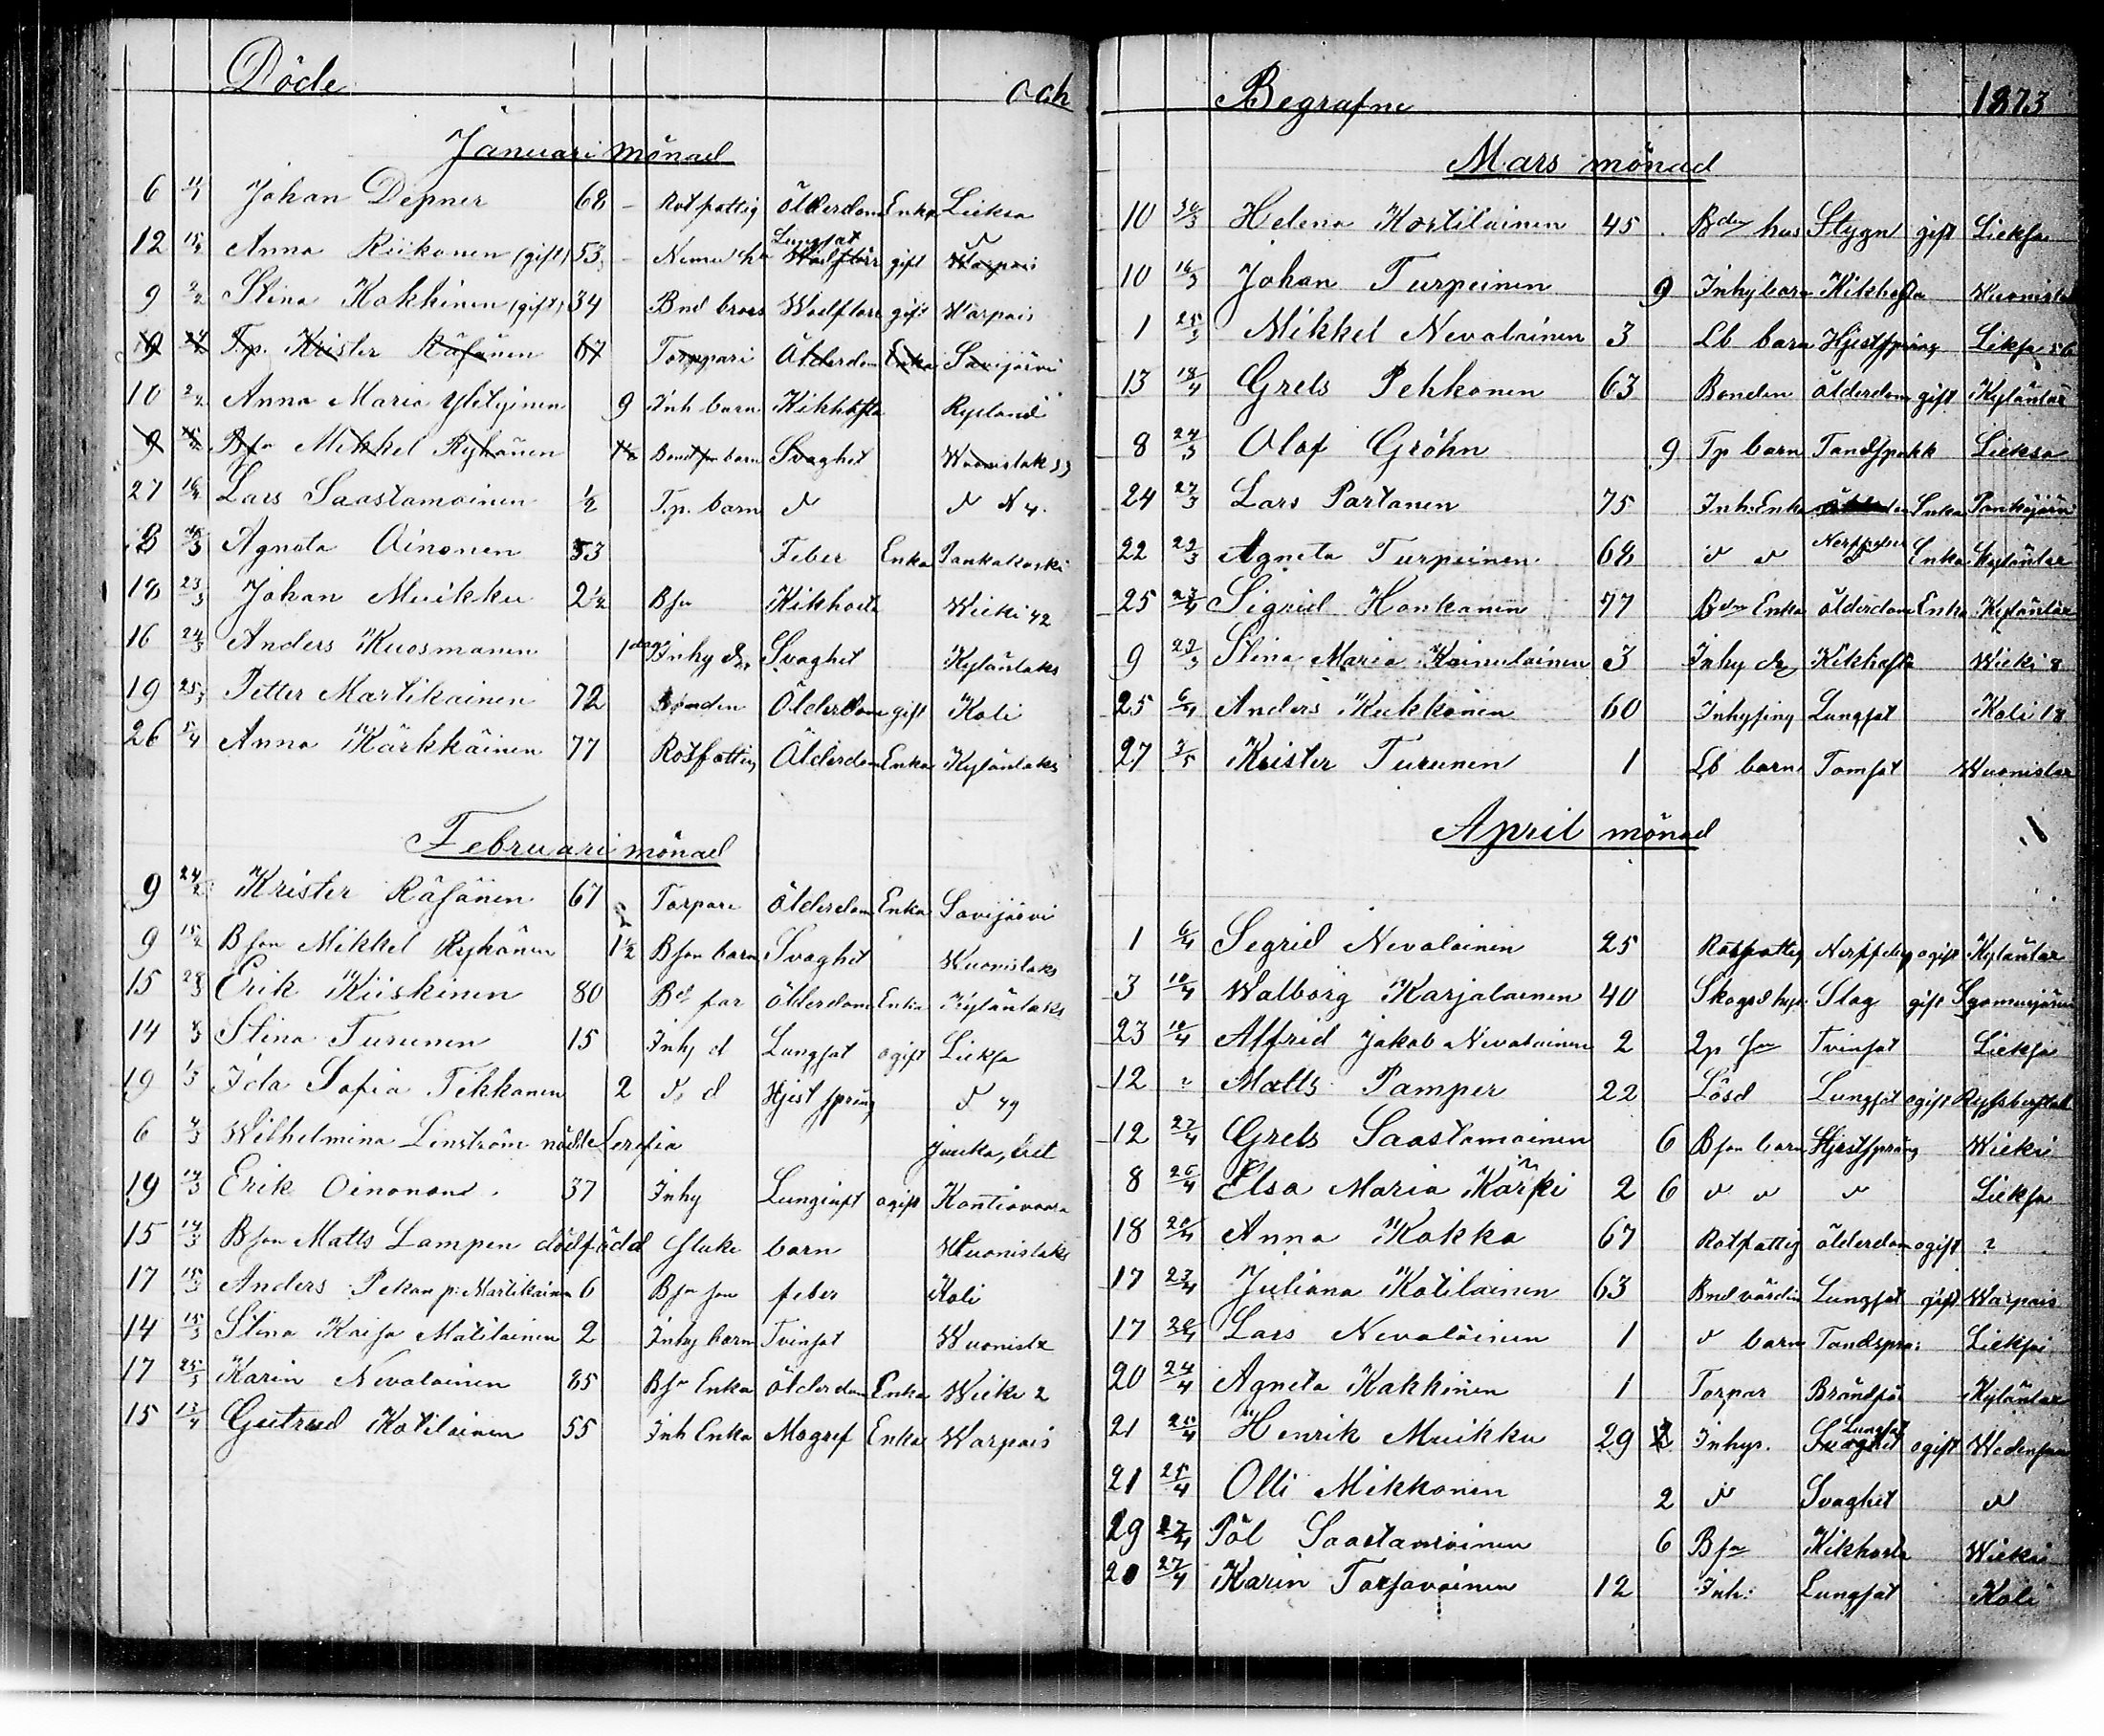 Döde och
Januari månad
6 11/1 Johan Depner 68 - Rotfattig Ålderdom Enka Lieksa
12 15/1 Anna Riikonen (gift) 53 - Lungsot gift
9 2/2 Stina Kakkinen (gift) 34 Bnd gift Warpais
19 T.p. Krister Räsänen 67 Torppari Ålderdom Enka Savijärvi
10 2/2 Anna Maria 9 Inh barn Kikhosta
9 Bsn Mikkel Ryhänen 1½ barn Svaghet Wuonislaks
27 16/2 Lars Saastamoinen ½ T.p. barn d d N 4.
8 Agneta Oinonen 53 Feber Enka Pankakoski
18 23/3 Johan Muikku 2½ Bsn Kikhosta Wieki 42
16 24/3 Anders Kuosmanen Inhy Svaghet Kylänlaks
19 25/3 Petter Martikainen 72 Bonden Ålderdom gift Koli
26 5/4 Anna Kärkkäinen 77 Rotfattig Ålderdom Enka Kylänlaks
Februari månad
9 24/2 Krister Räsänen 67 Torpare Ålderdom Enka Savijärvi
9 15/2 Bson Mikkel Ryhänen 1½ Bson barn Svaghet Wuonislaks
15 28/3 Erik Kiiskinen 80 Bd far ålderdom Enka Kylänlaks
14 8/3 Stina Turunen 15 Inhy d Lungsot ogift Lieksa
19 1/3 Ida Sofia Tekkanen 2 d, d Hjest spräng d 49
6 4/3 Wilhelmina Linström Juuka,
19 14/3 Erik Oinonen 37 Inhy ogift Kontiovaara
15 14/3 Bson Matts Lampen dödfödd barn Wuonislaks
17 15/3 Anders Martikainen 6 Bsn son feber Koli
14 15/3 Stina Kaisa Matilainen 2 Inhy barn Tvinsot
17 25/3 Karin Nevalainen 85 Bsn Enka ålderdom Enka Wieki 2
15 13/4 Geitrud Kotilainen 55 Inh Enka Magref Enka Warpais
Begrafne 1873
Mars månad
10 Helena Kortilainen 45 hus Stygn gift Lieksa
10 16/3 Johan Turpeinen 9 Inhy barn Kikhosta
1 25/3 Mikkel Nevalainen 3 Lb barn Hjestspräng
13 18/4 Grels Pehkonen 63 Bonden ålderdom gift
8 24/3 Olof Gröhn 9 Tp barn Lieksa
24 27/3 Lars Partanen 75 Inh. Enka Enka
22 23/3 Agneta Turpeinen 68 d d Enka
25 Sigrid Honkanen 77 Enka ålderdom Enka
9 23/3 Stina Maria Kainulainen 3 Inhy Kikhosta Wieki 8
25 6/4 Anders Kukkonen 60 Inhysing Lungsot Koli 18
27 3/5 Krister Turunen 1 Lb barn
April månad
1 6/4 Segrid Nevalainen 25 Rotfattig ogift
3 10/4 Walborg Karjalainen 40 Slag gift
23 10/4 Alfrid Jakob Nevalainen 2 Tvinsot Lieksa
12 ? Matts Pamper 22 Lösd Lungsot ogift
12 27/4 Grels Saastamoinen 6 Bson barn Hjestspräng Wieki
8 26/4 Elsa Maria Kärki 2 6 d d d Lieksa
18 20/4 Anna Kokko 67 Rotfattig ålderdom ogift ?
17 23/4 Juliana Kotilainen 63 Bnd värdin Lungsot gift Warpais
17 Lars Nevalainen 1 d barn Tandspra: Lieksa
20 24/4 Agneta Kakkinen 1 Torpar
21 Henrik Muikku 29 Inhys. Svaghet Lungsot ogift
21 25/4 Olli Mikkonen 2 d Svaghet d
29 27/4 Pål Saastamoinen 6 Bsn Kikhosta Wieki
20 27/4 Karin Torsavainen 12 Inh: Lungsot Koli